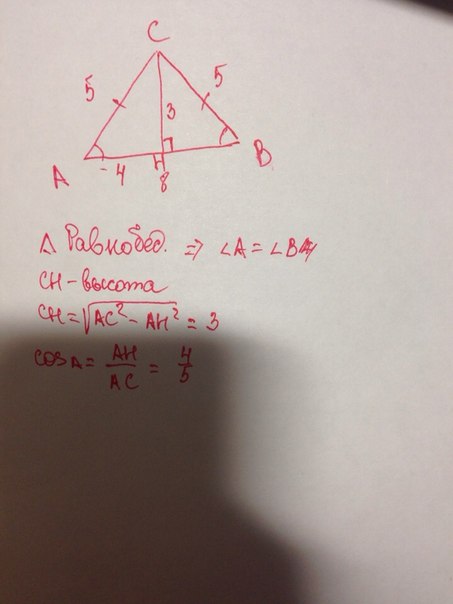 C
5 5
3
A B
4 H
8
Δ Равнобед. => ∠A = ∠B
CH - высота
CH = √AC² - AH² = 3
cos A = AH/AC = 4/5